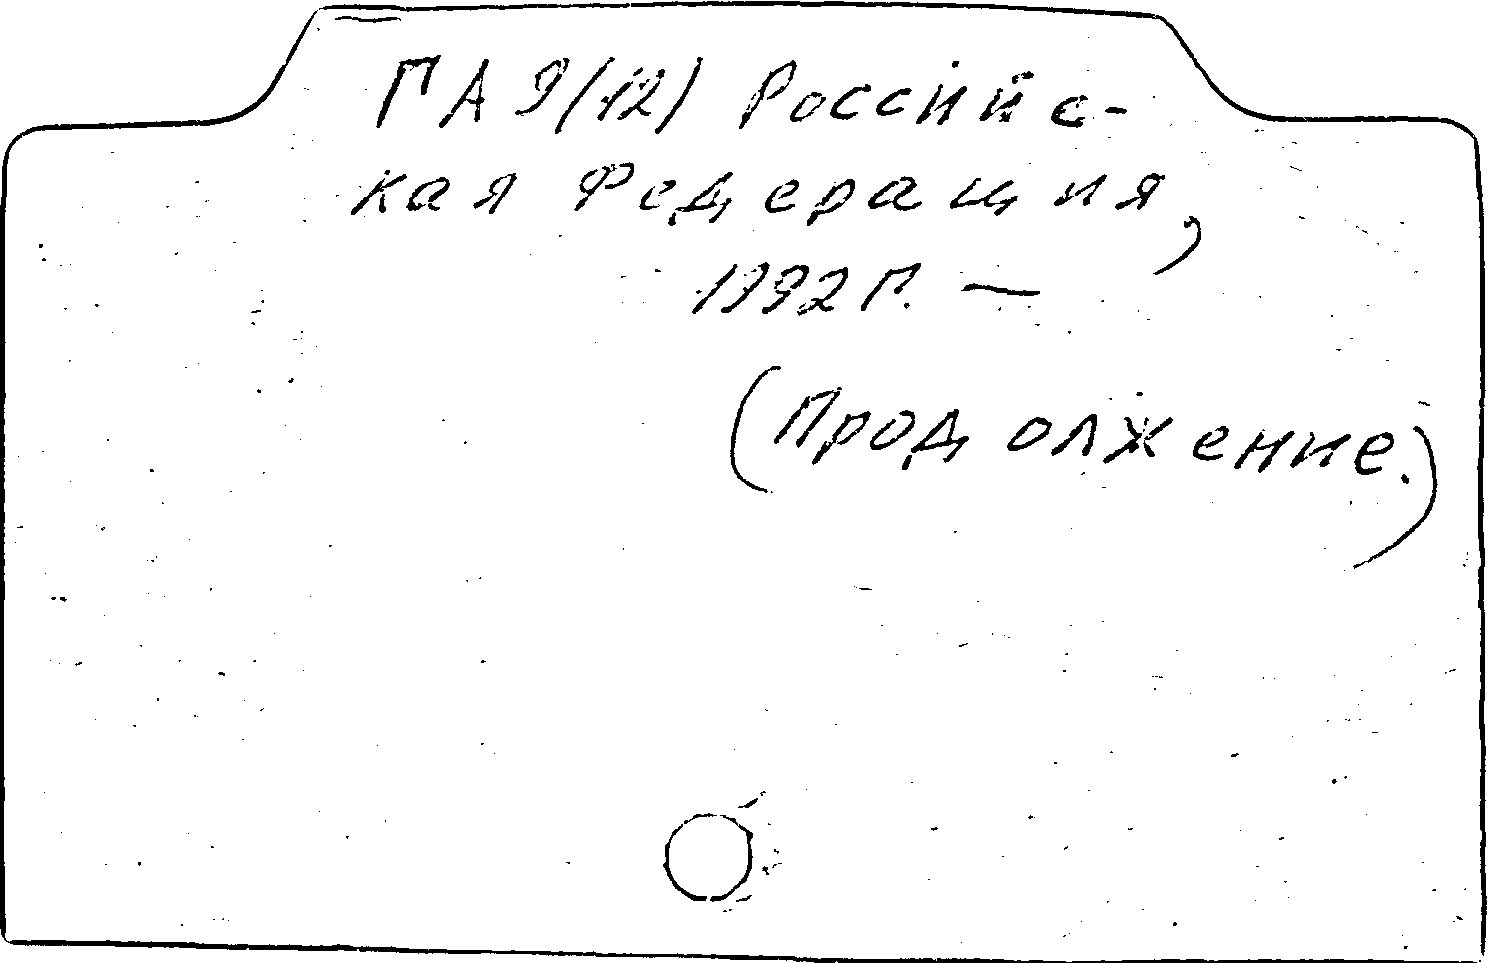 ГА 9(12) Российс-
кая Федерация,
1992 г. —
(Продолжение.)